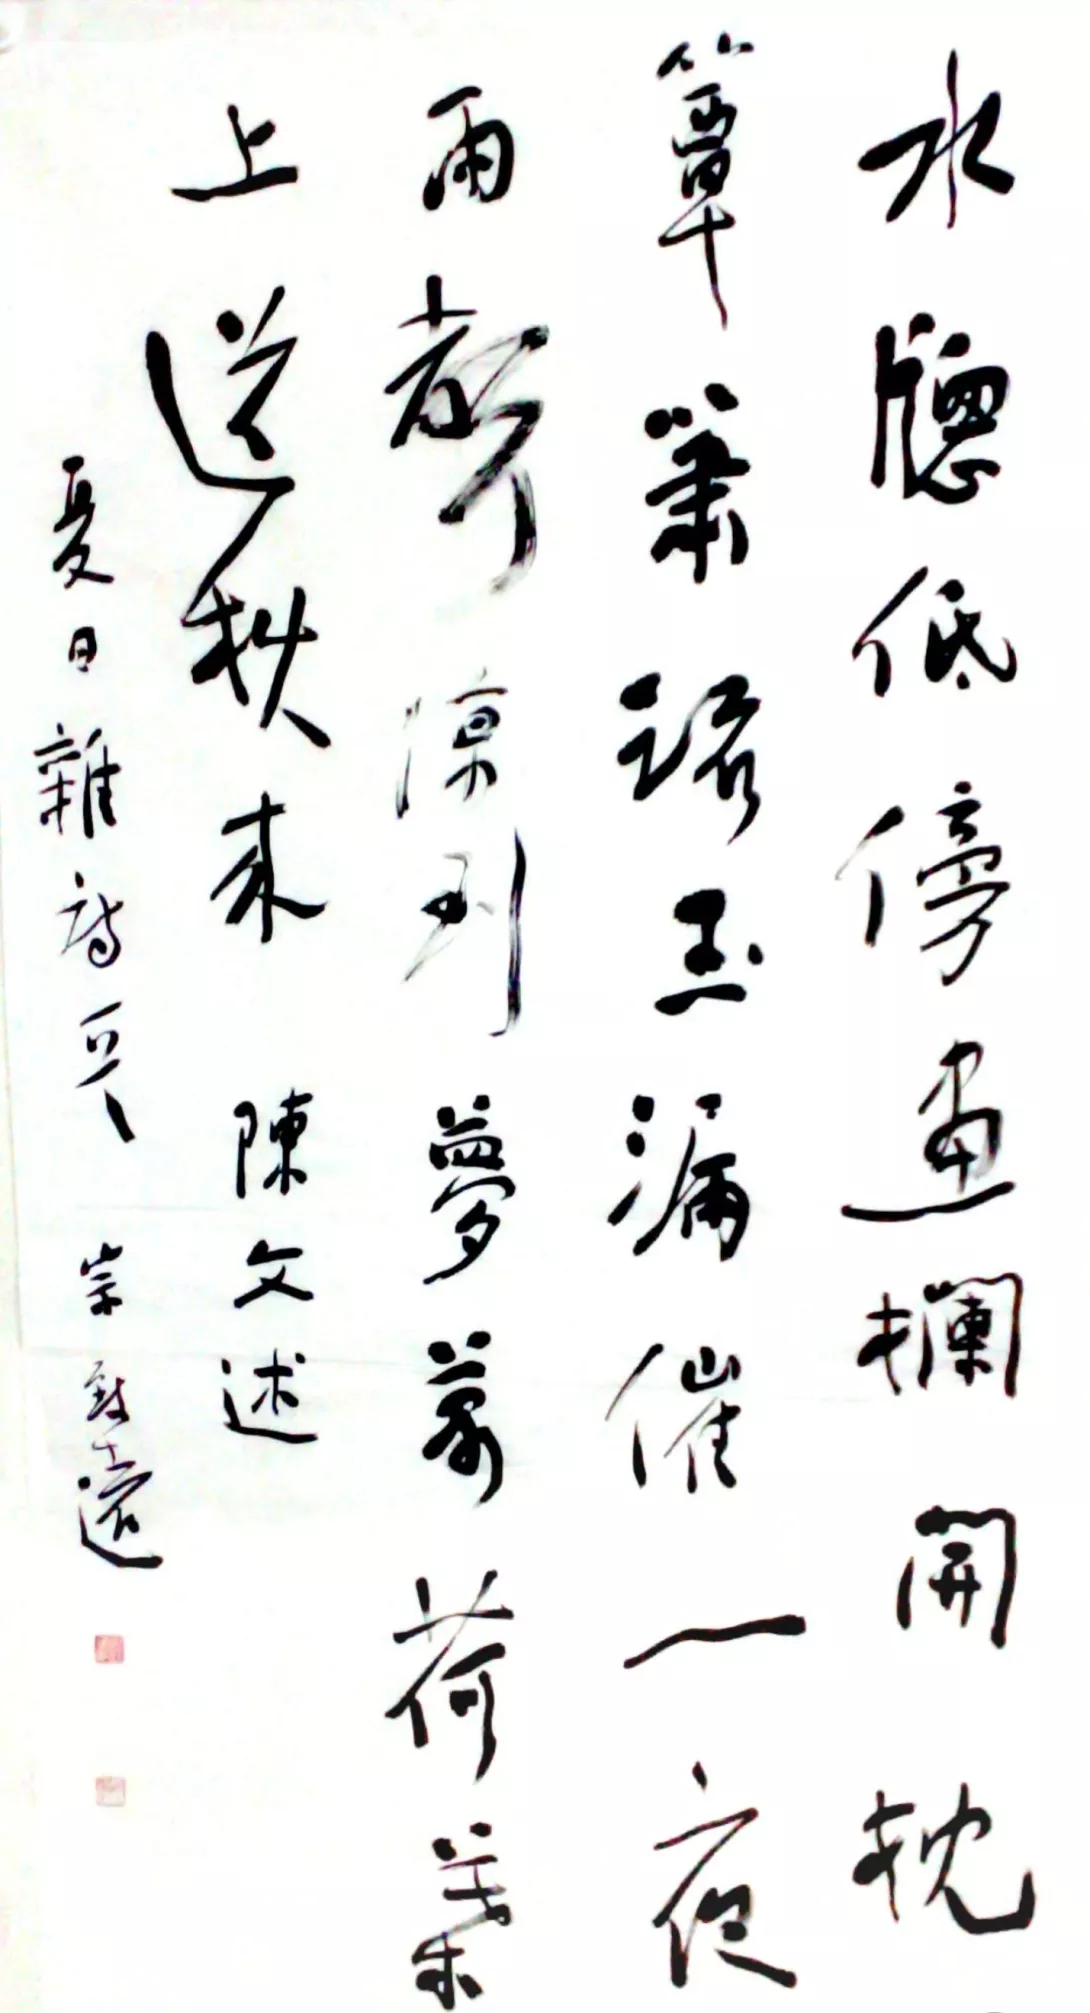 水牕低傍畫欄開枕
簟蕭疏玉漏催一夜
雨聲涼到夢萬荷葉
上送秋來 陳文述
夏日雜詩 致遠